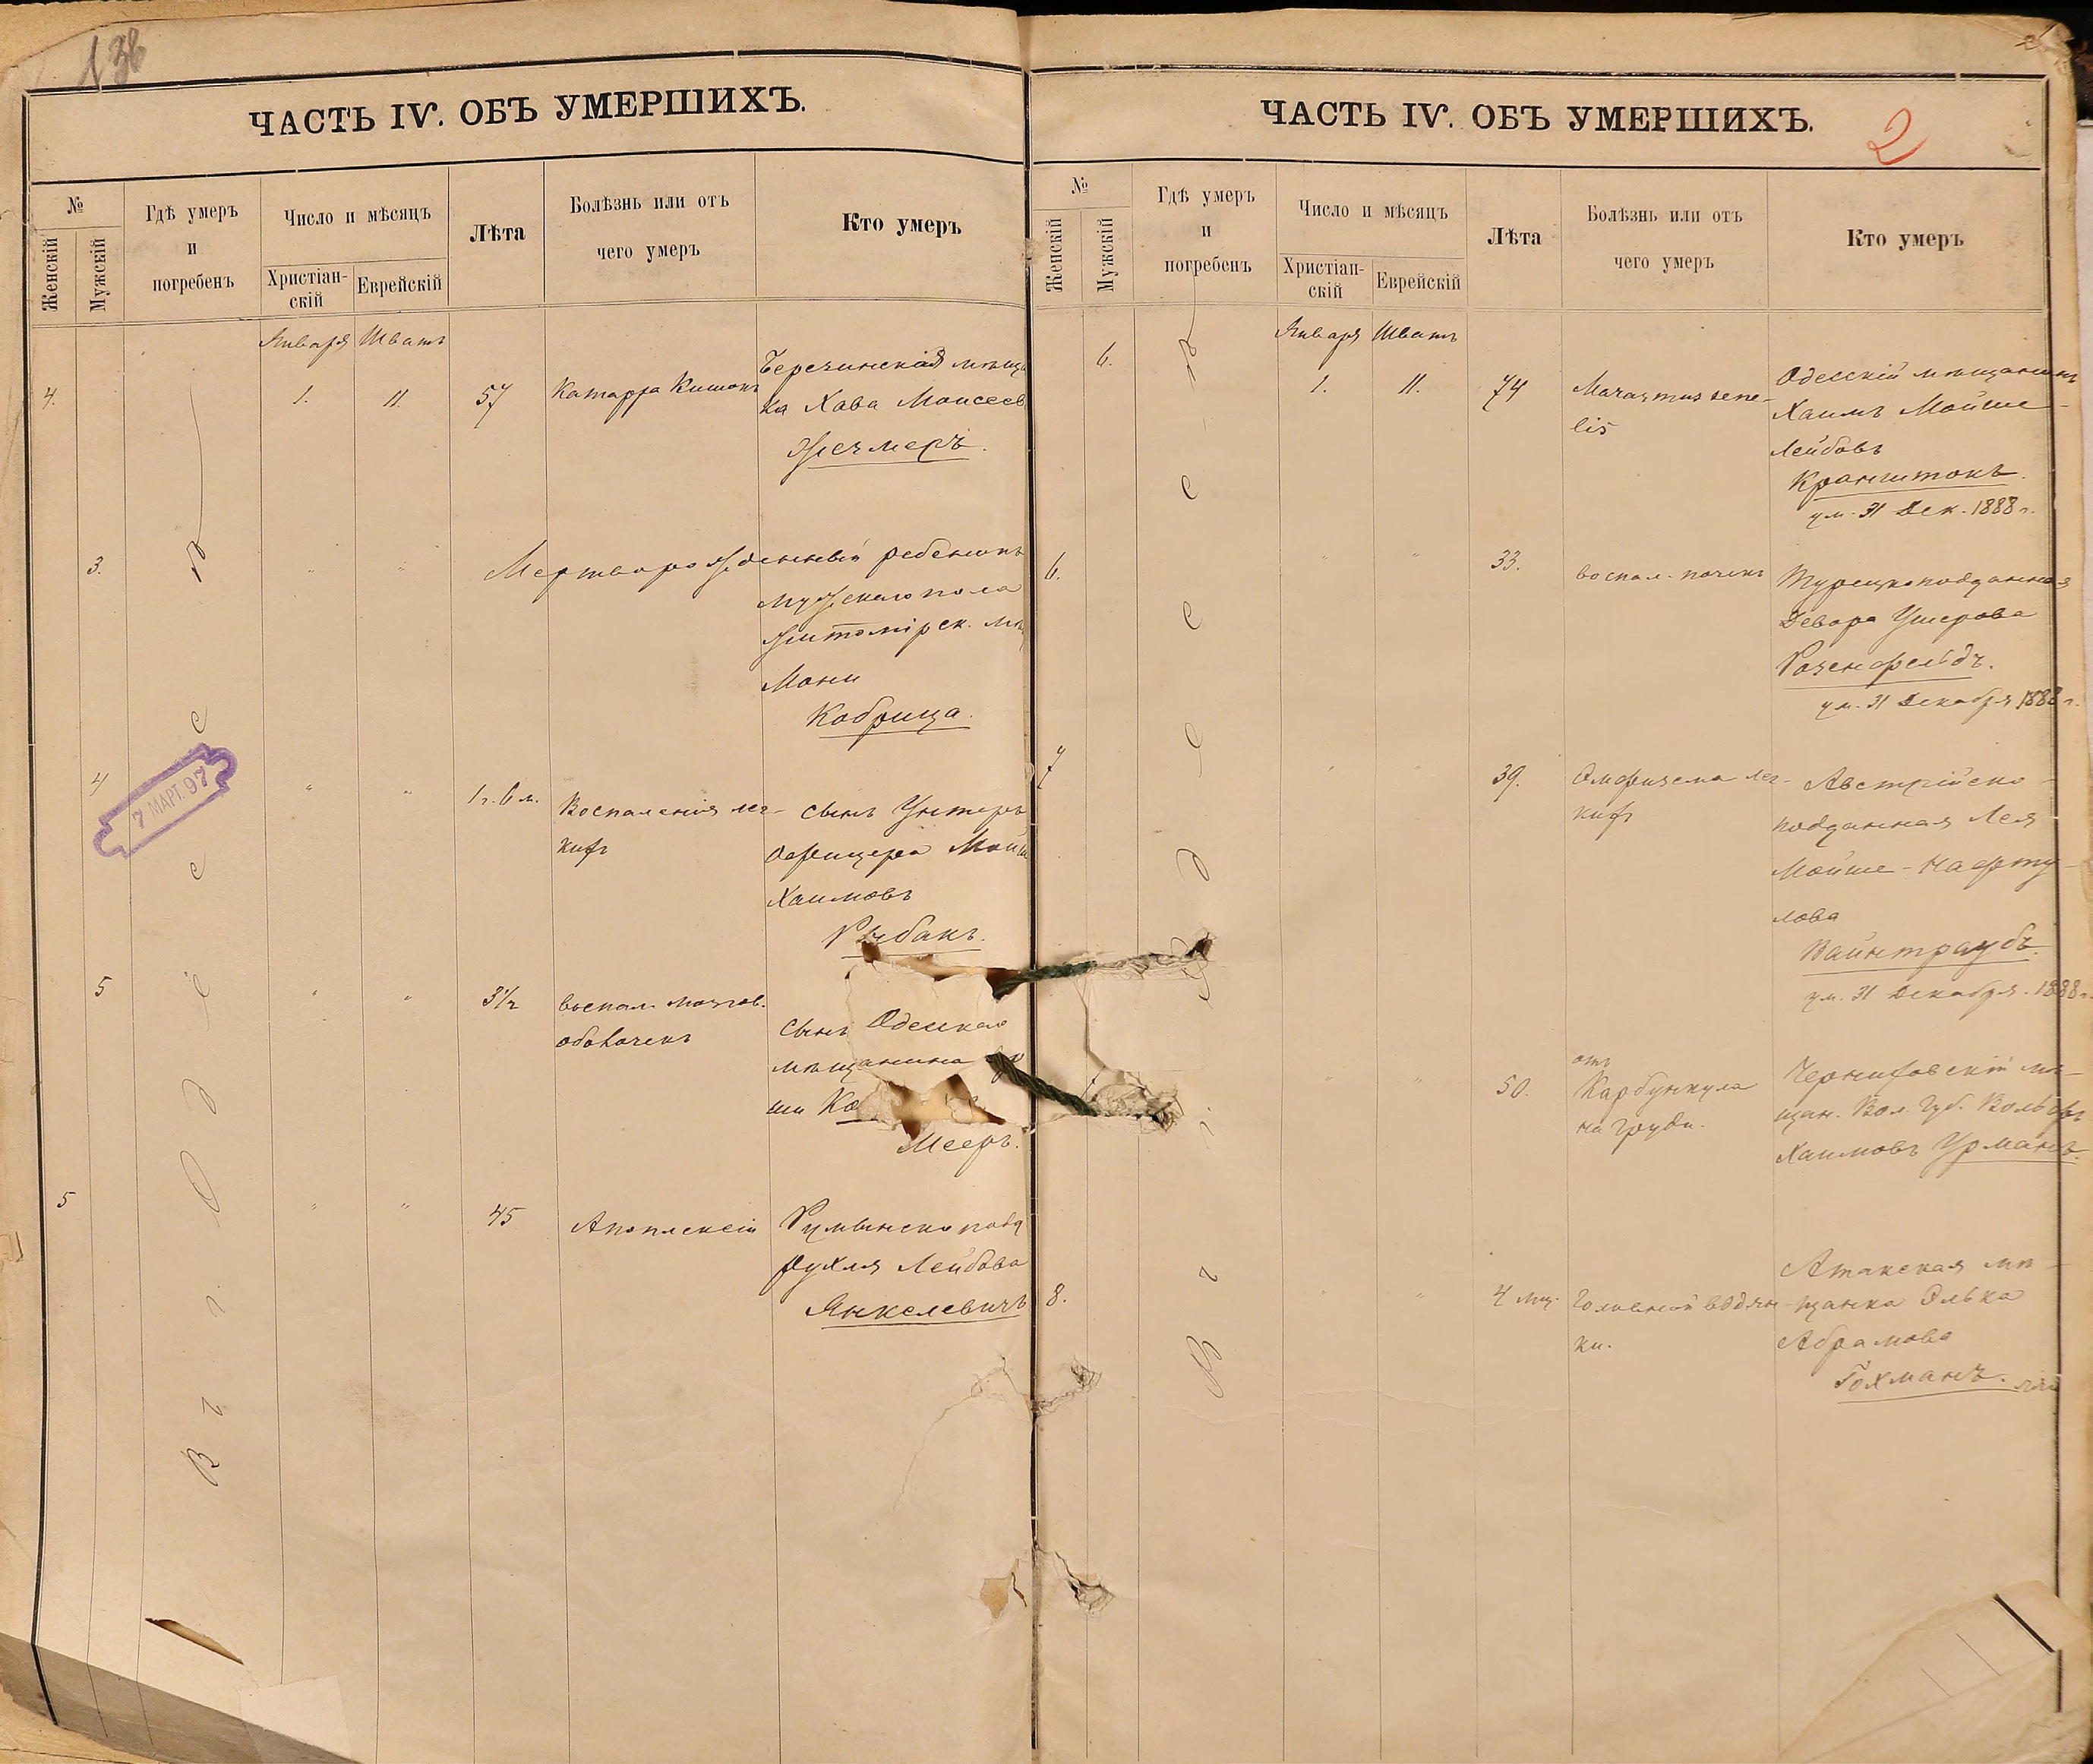 ЧАСТЬ IV. ОБЪ УМЕРШИХЪ.
№
Женскій
Мужскій
Гдѣ умеръ
и
погребенъ
Число и мѣсяцъ
Христіан-
скій
Еврейскій
Лѣта
Болѣзнь или отъ
чего умеръ
Кто умеръ
Января Шватъ
4.
1.
11.
57
Катарра Кишокъ
мѣщ
ка Хава Моисеев
3.
Мертворожденный ребенокъ
мужскаго пола
Житомірск. мѣщ
Мони
Кобрица.
4
1 г. 6 м.
Воспаленія лег-
кихъ
сынъ Унтеръ
Офицера
Хаимовъ
Рыбакъ.
5
3½
воспал. мозгов.
оболочекъ
сынъ Одесскаго
мѣщанина
ши
Мееръ.
5
45
Апоплексіи
Румынскопод
Рухля Лейбова
Янкелевичъ
Въ г. Одессѣ
7 МАРТ. 97
ЧАСТЬ IV. ОБЪ УМЕРШИХЪ.
2
№
Женскій
Мужскій
Гдѣ умеръ
и
погребенъ
Число и мѣсяцъ
Христіан-
скій
Еврейскій
Лѣта
Болѣзнь или отъ
чего умеръ
Кто умеръ
Января Шватъ
6.
1.
11.
74
Marasmus sene-
lis
Одесскій мѣщанинъ
Хаимъ Мойше
Лейбовъ
Кранштокъ.
ум. 31 Дек. 1888 г.
6.
33.
воспал. почекъ
Турецкоподданная
Двора Ушерова
Розенфельдъ.
ум. 31 Декабря 1888 г.
7
39.
Эмфизема лег-
кихъ
Австрійско-
подданная Лея
Мойше-Нафту-
лова
Вайнтраубъ.
ум. 31 Декабря. 1888 г.
50.
отъ
Карбункула
на груди.
мѣ-
щан. Вол. Губ. Вольфъ
Хаимовъ Урманъ.
8.
4 мц.
Головной водян-
ки.
Атакская мѣ-
щанка Элька
Абрамова
Гохманъ.
Въ г. Одессѣ